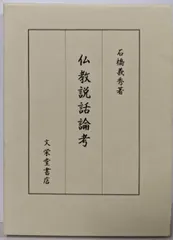 石橋義秀著
仏教説話論考
文栄堂書店